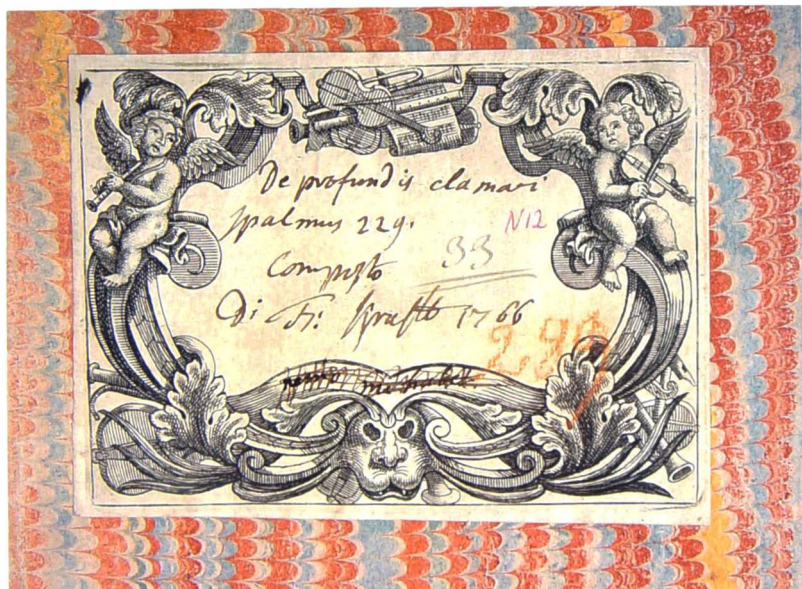 De profundis clamavi
Spalmus 229.
N12
Composto
33
Di Fr: Krafft 1766
299